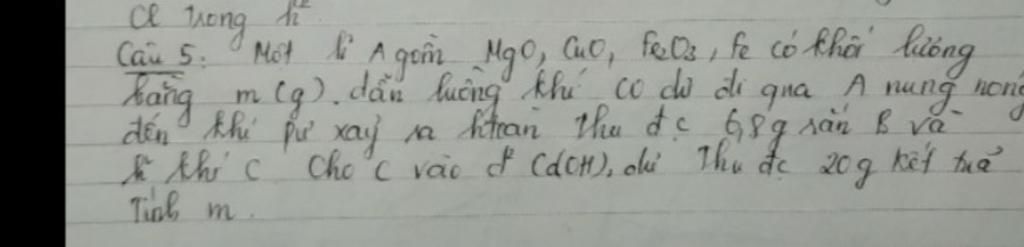 Cl trong h²
Câu 5: Một h² A gồm MgO, CuO, Fe2O3, Fe có khối lượng
bằng m (g). dẫn luồng khí CO dư đi qua A nung nóng
đến khi pư xảy ra htoàn thu đc 6,8g rắn B và
h² khí C Cho C vào d² Ca(OH)2 dư Thu đc 20g kết tủa
Tính m.